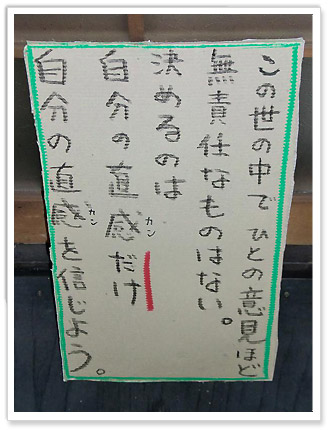 この世の中でひとの意見ほど
無責任なものはない。
決めるのは
自分の直感だけ
カン
自分の直感を信じよう。
カン